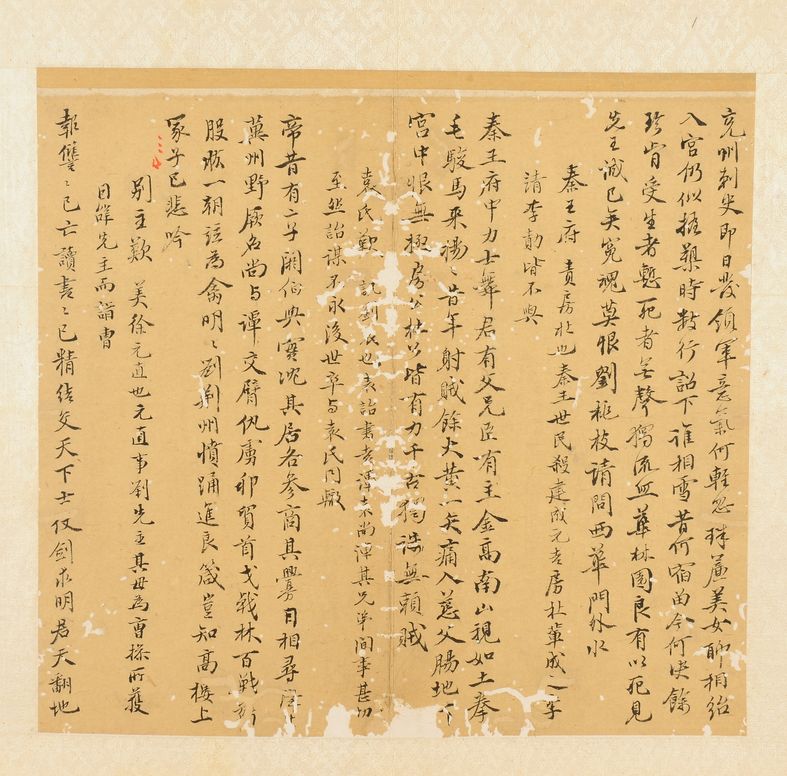 兗州刺史即日發領軍意氣何輕忽珠簾美女聊相紿
入宮仍似捶藥時數行詔下誰相雪昔何宿留今何決餘
珍肯受生者慙死者無聲獨流血華林園良有以死見
先王誠已矣冤魂莫恨劉桃枝請問西華門外水
秦王府 責房杜也秦王世民殺建成元吉房杜輩成之字
請李勣皆不與
秦王府中力士舞君有父兄臣有主金高南山視如土拳
毛騧馬來楊楊昔年射賊餘大黃一矢痛入慈父腸地下
宮中恨無極房公杜公皆有力千古獨誅無賴賊
袁氏歎 記劉氏也表詒書責譚袁尚譚其兄弟間事甚切
至然詒謀不永後世卒與袁氏同轍
帝昔有二子閼伯與實沈其居各參商其釁自相尋
冀州野厥名尚與譚交臂仇虜卯賀首戈戟林百戰折
股肱一朝詼為禽明明劉荊州憤踊進良箴豈知高樓上
冢子已悲吟
別主歎 美徐元直也元直事劉先主其母為曹操所獲
因辭先主而詣曹
報讐讐已亡讀書書已精結交天下士仗劍求明君天翻地